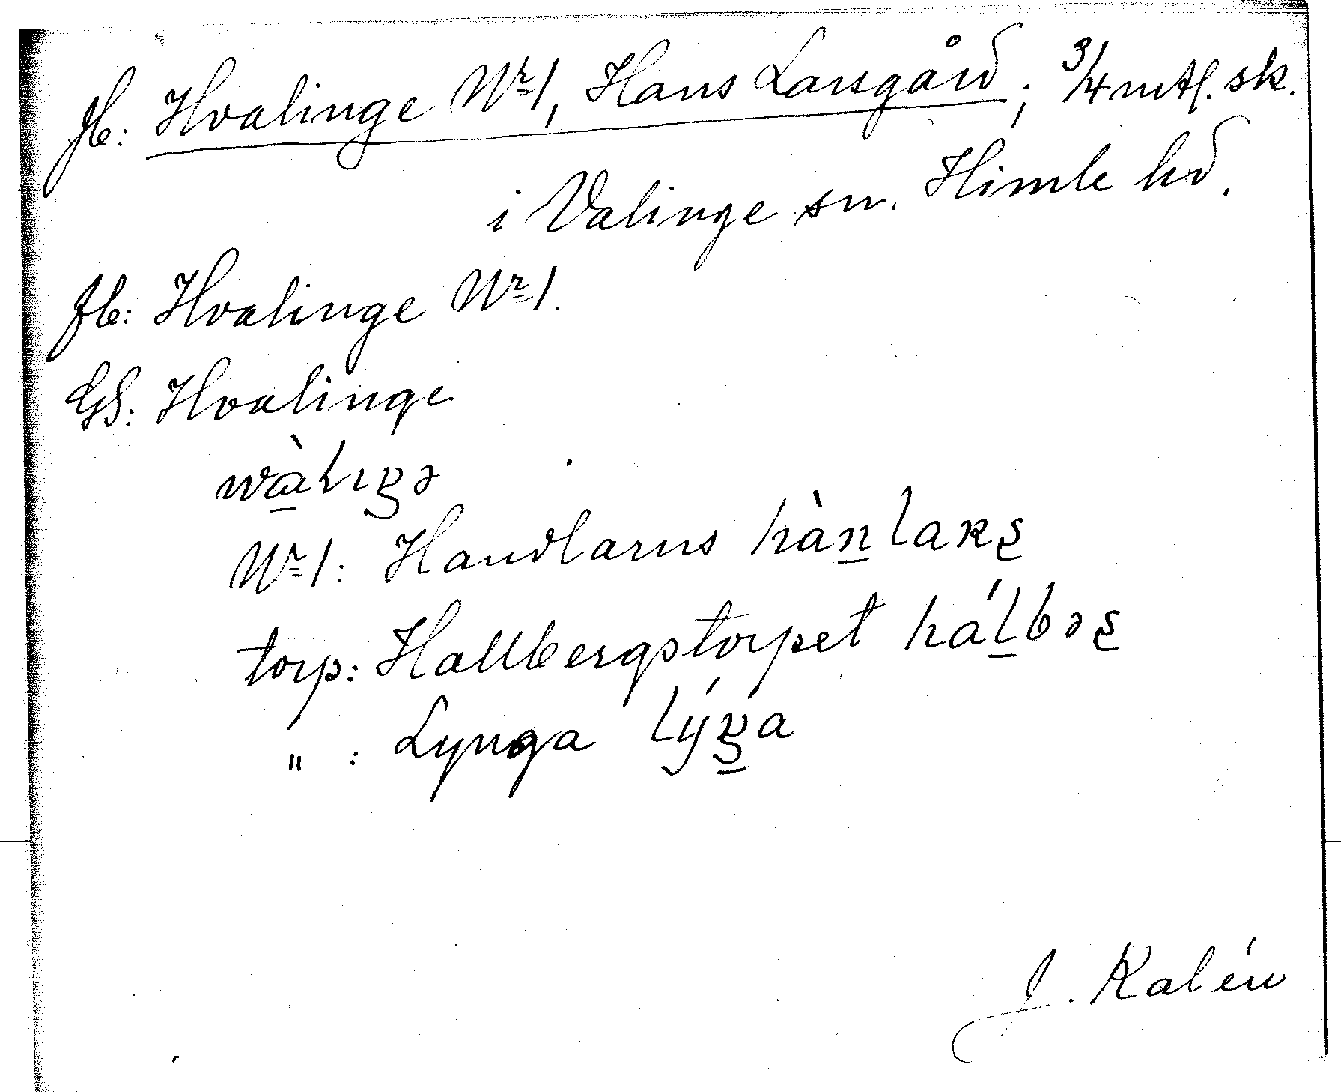 Jb: Hvalinge Nr 1, Hans Larsgård; 3/4 mtl. sk.
i Valinge sn. Himle hd.
Jb: Hvalinge Nr 1.
GS: Hvalinge
wàlıŋə
Nr 1: Handlarns hànlaʀs
torp: Hallbergstorpet hálbəs
" : Lynga lýŋa
J. Kalén